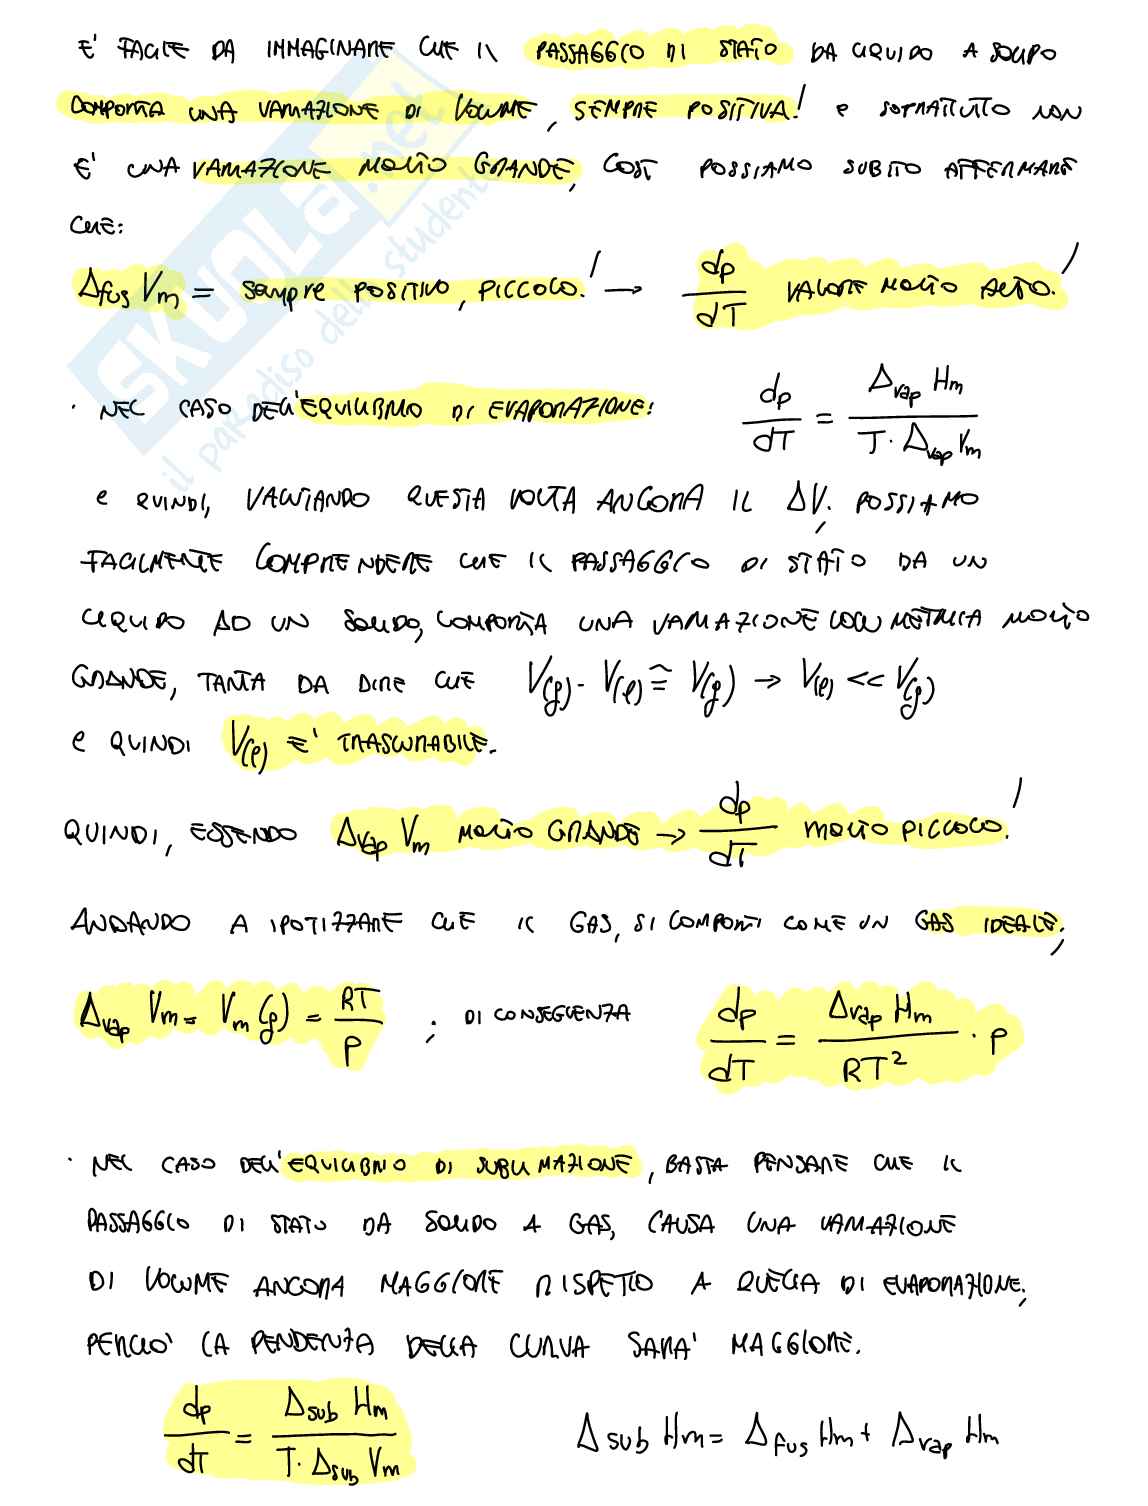 E' FACILE DA IMMAGINARE CHE IL PASSAGGIO DI STATO DA LIQUIDO A SOLIDO
COMPORTA UNA VARIAZIONE DI VOLUME, SEMPRE POSITIVA! e SOPRATTUTTO NON
E' UNA VARIAZIONE MOLTO GRANDE, COSÌ POSSIAMO SUBITO AFFERMARE
CHE:
Δfus Vm = sempre POSITIVO, PICCOLO! → dp/dT VALORE MOLTO ALTO!
· NEL CASO DELL'EQUILIBRIO DI EVAPORAZIONE: dp/dT = Δvap Hm / T · Δvap Vm
e QUINDI, VALUTANDO QUESTA VOLTA ANCORA IL ΔV; POSSIAMO
FACILMENTE COMPRENDERE CHE IL PASSAGGIO DI STATO DA UN
LIQUIDO AD UN SOLIDO, COMPORTA UNA VARIAZIONE VOLUMETRICA MOLTO
GRANDE, TANTA DA DIRE CHE V(g) - V(l) ≅ V(g) → V(l) << V(g)
e QUINDI V(l) E' TRASCURABILE.
QUINDI, ESSENDO Δvap Vm MOLTO GRANDE → dp/dT MOLTO PICCOLO!
ANDANDO A IPOTIZZARE CHE IL GAS, SI COMPORTI COME UN GAS IDEALE;
Δvap Vm = Vm (g) = RT/P ; DI CONSEGUENZA dp/dT = Δvap Hm / RT² · P
· NEL CASO DELL'EQUILIBRIO DI SUBLIMAZIONE, BASTA PENSARE CHE IL
PASSAGGIO DI STATO DA SOLIDO A GAS, CAUSA UNA VARIAZIONE
DI VOLUME ANCORA MAGGIORE RISPETTO A QUELLA DI EVAPORAZIONE;
PERCIO' LA PENDENZA DELLA CURVA SARA' MAGGIORE.
dp/dT = Δsub Hm / T · Δsub Vm Δsub Hm = Δfus Hm + Δvap Hm
SKUOLA.net
il paradiso dello studente